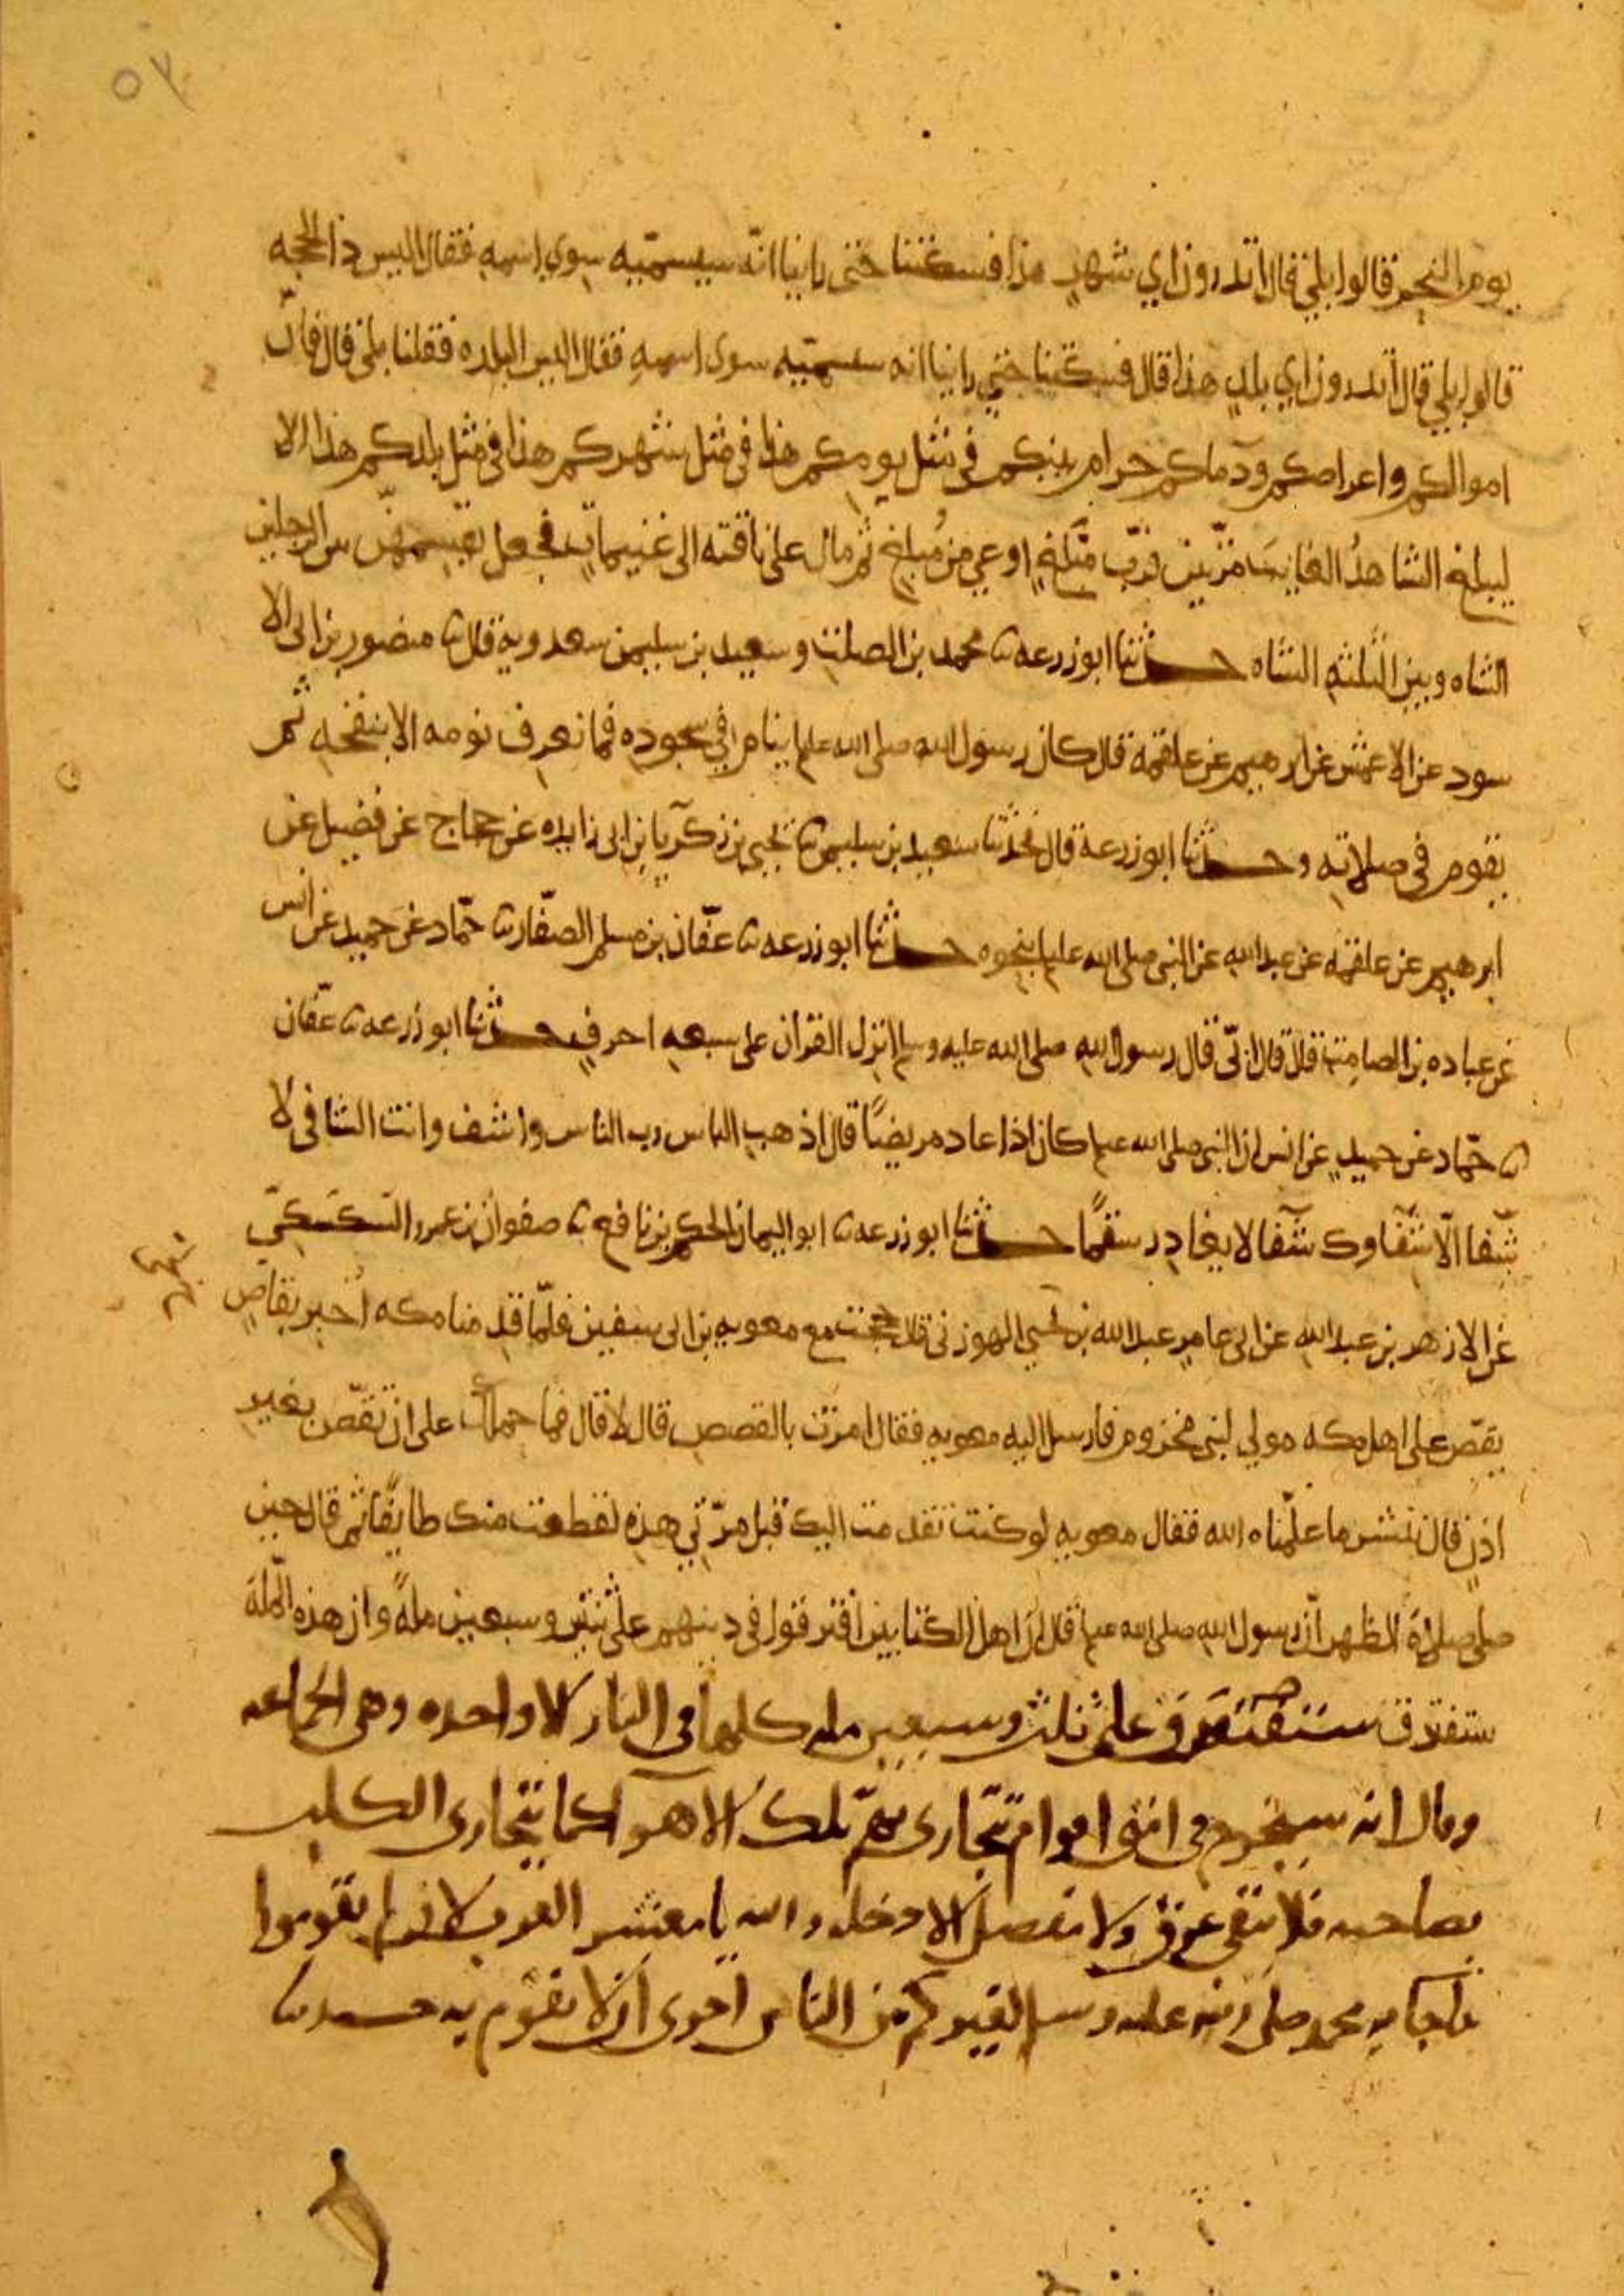 ٥٧
يوم النحر قالوا بلى قال اتدرون اي شهر هذا فسكتنا حتى راينا انّه سيسمّيه سوى اسمه فقال اليس ذا الحجه
قالوا بلى قال اتدرون اي بلد هذا قال فسكتنا حتى راينا انه سيسمّيه سوى اسمه فقال اليس البلده فقلنا بلى قال فانّ
اموالكم واعراضكم ودماكم حرام بينكم في مثل يومكم هذا في مثل شهركم هذا في مثل بلدكم هذا الا
ليبلغ الشاهدُ الغايبَ مرّتين فربّ مبلّغ اوعي من مُبلغ ثم مال على ناقته الى غنيمات فجعل يقسمهنّ بين الرجلين
الشاه وبين الثلثه الشاه حدثنا ابو زرعه ثنا محمد بن الصلت وسعيد بن سليمن سعدويه قال ثنا منصور بن ابي الا
سود عن الاعمش عن ابرهيم عن علقمة قال كان رسول الله صلى الله عليه ينام في سجوده فما نعرف نومه الا بنفخه ثم
يقوم في صلاته وحدثنا ابو زرعة قال فحدثنا سعيد بن سليمن ثنا يحيى بن زكريا بن ابي زايده عن حجاج عن فضيل عن
ابرهيم عن علقمه عن عبد الله عن النبي صلى الله عليه بنحوه حدثنا ابو زرعه ثنا عفّان بن مسلم الصفّار ثنا حمّاد عن حميد عن انس
عن عباده بن الصامت قال قال ابيّ قال رسول الله صلى الله عليه وسلم انزل القران على سبعه احرف حدثنا ابو زرعه ثنا عفّان
ثنا حمّاد عن حميد عن انس ان النبي صلى الله عليه كان اذا عاد مريضًا قال اذهب الباس رب الناس واشف وانت الشافى لا
شفا الّا شفاوك شفا لا يغادر سقمًا حدثنا ابو زرعه ثنا ابو اليمان الحكم بن نافع ثنا صفوان بن عمرو السكسكيّ
عن الازهر بن عبد الله عن ابي عامر عبد الله بن لحي الهوزني قال حججت مع معويه بن ابي سفين فلمّا قدمنا مكه اُخبر بقاص
يقصّ على اهل مكه مولي لبني مخزوم فارسل اليه معويه فقال امرت بالقصص قال لا قال فما حملك على ان تقصّ بغير
اذن قال ننشر ما علّمناه الله فقال معويه لو كنت تقدمت اليك قبل مرّتي هذه لقطعت منك طايفًا ثم قال حين
صلى صلاة الظهر انّ رسول الله صلى الله عليه قال ان اهل الكتابين افترقوا في دينهم على ثنتين وسبعين ملةً وان هذه الملة
ستفترق ستفترق على ثلث وسبعين مله كلها في النار الا واحده وهي الجماعه
وقال انه سيخرج في امتي اقوام تتجارى بهم تلك الاهوا كما يتجارى الكلب
بصاحبه فلا يبقى عرق ولا مفصل الا دخله والله يا معشر العرب لان لم تقوموا
بما جا به محمد صلى الله عليه وسلم لغيركم من الناس احرى ان لا يقوم به حدثنا